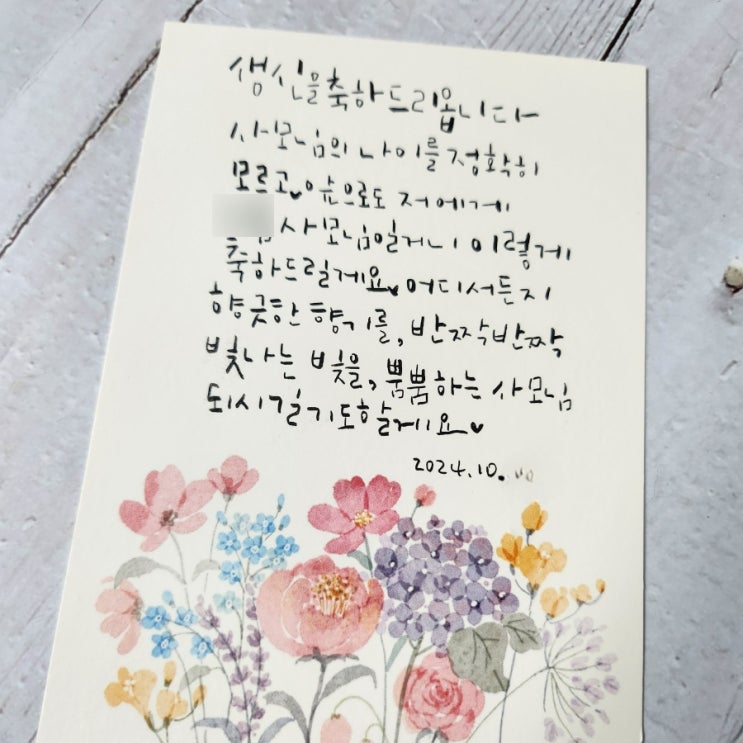 생신을축하드리옵니다
사모님의 나이를 정확히
모르고♥앞으로도 저에게
사모님일거니 이렇게
축하드릴게요♥어디서든지
향긋한 향기를, 반짝반짝
빛나는 빛을, 뿜뿜하는 사모님
되시길기도할게요♥
2024.10.